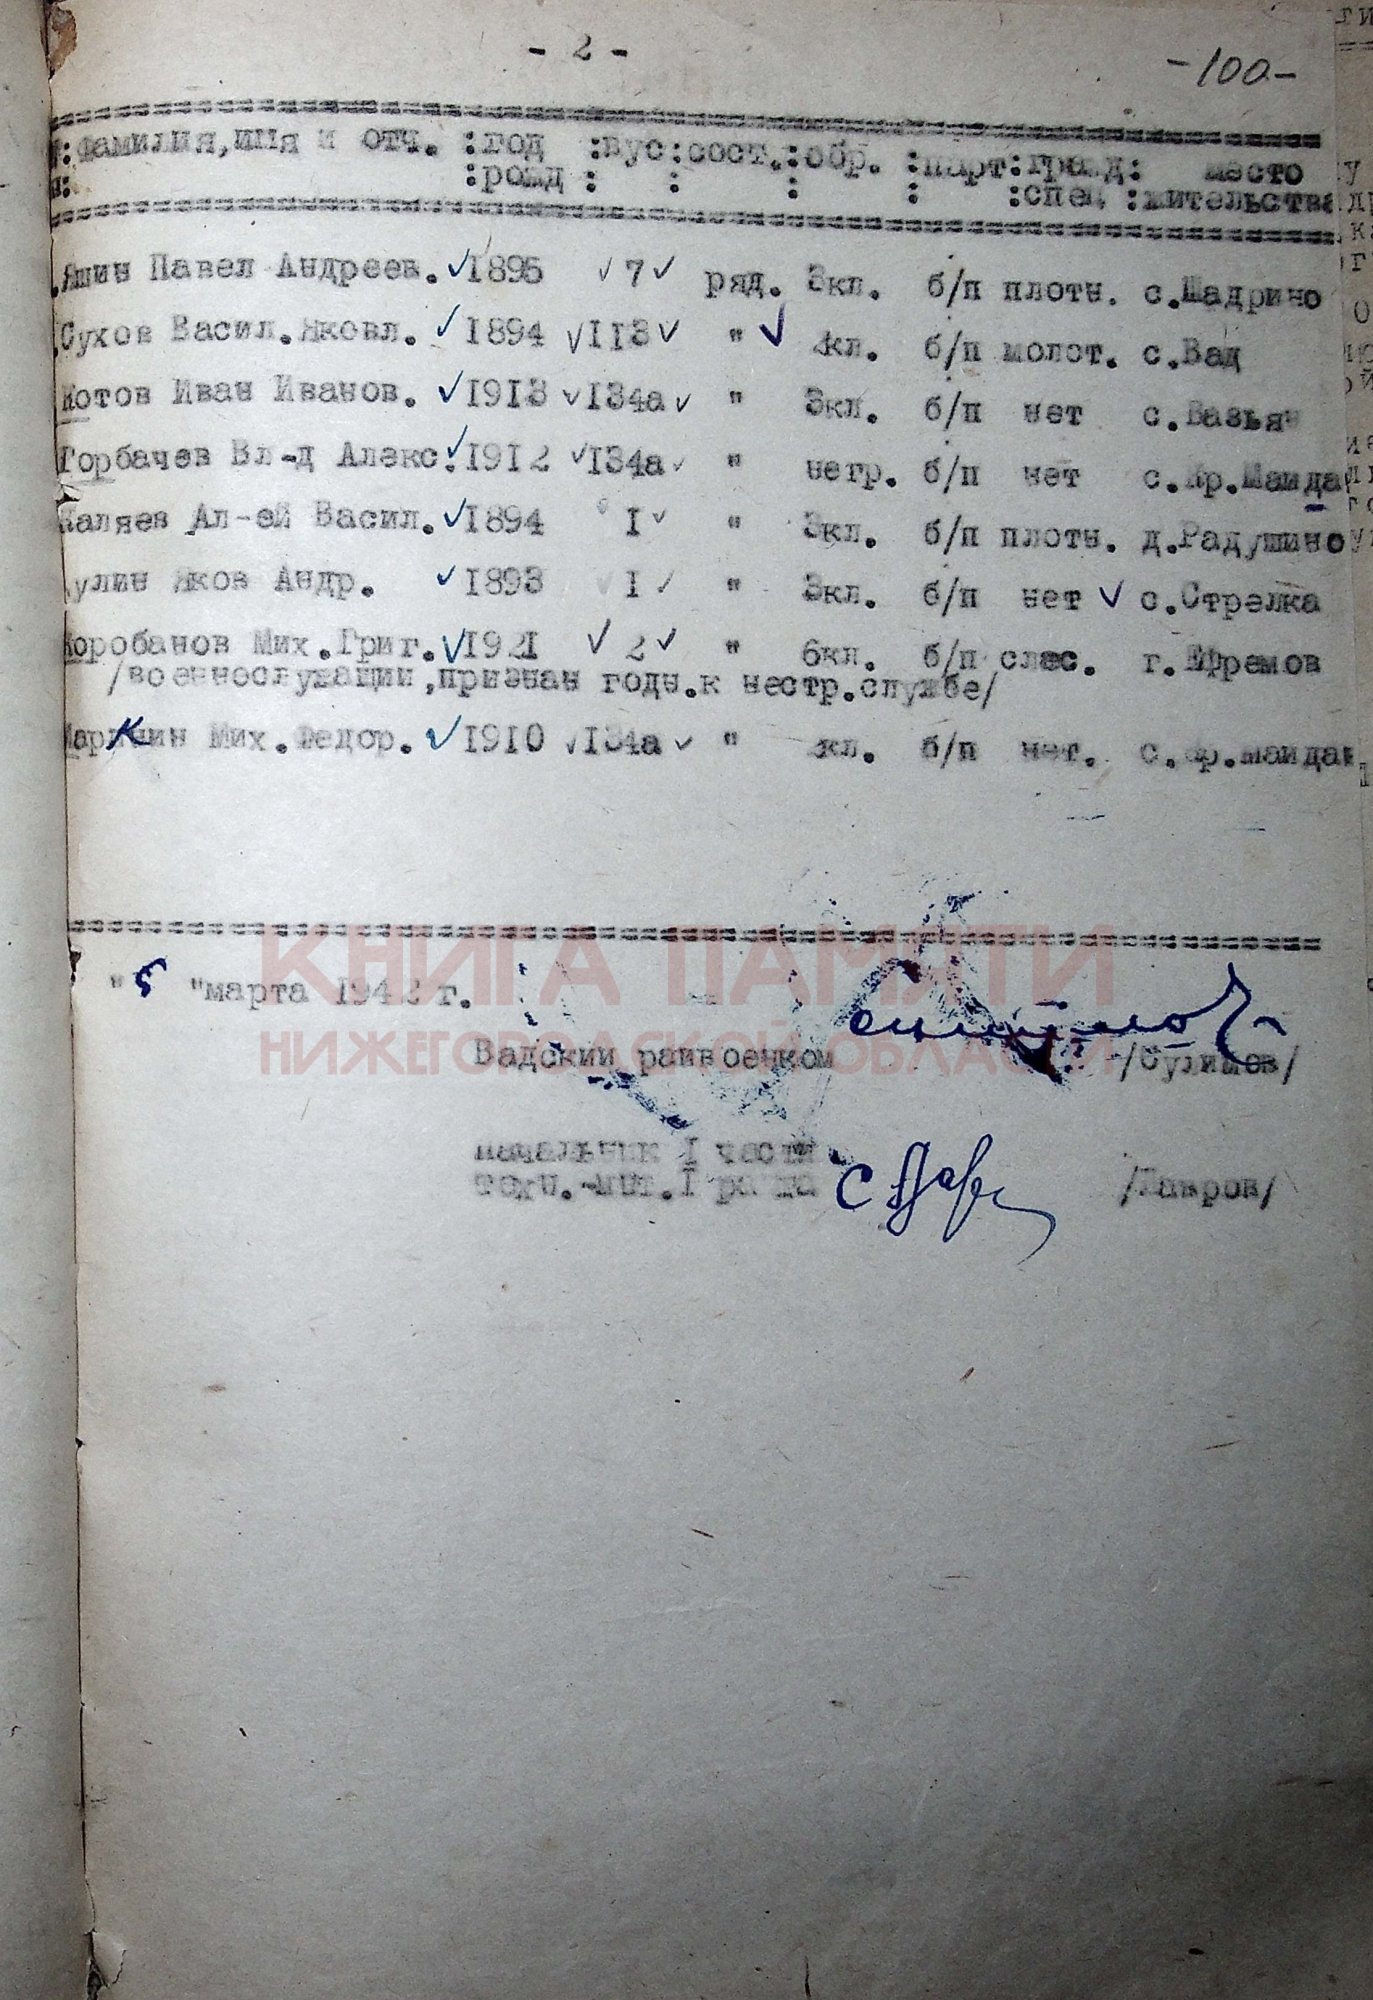 - 2 -
-100-
:фамилия,имя и отч. :год :вус:сост.:обр. :парт:гражд: место
:рожд : : : : :спец :жительства
.Яшин Павел Андреев. 1895 7 ряд. 3кл. б/п плотн. с.Шадрино
Сухов Васил.Яковл. 1894 113 " кл. б/п молот. с.Вад
Котов Иван Иванов. 1913 134а " 3кл. б/п нет с.Вазьян
Горбачев Вл-д Алекс. 1912 134а " негр. б/п нет с.Кр.Майда
Каляев Ал-ей Васил. 1894 I " 3кл. б/п плотн. д.Радушино
улин Яков Андр. 1893 I " 3кл. б/п нет с.Стрелка
Коробанов Мих.Григ. 1921 2 " 6кл. б/п слес. г.Ефремов
/военнослужащий,признан годн.к нестр.службе/
Мих.Федор. 1910 134а " кл. б/п нет. с.Кр.майдан
КНИГА ПАМЯТИ
НИЖЕГОРОДСКОЙ ОБЛАСТИ
" 5 "марта 1942 г.
Вадский райвоенком /Сулимов/
начальник I части
техн.-инт.I ранга /Лавров/